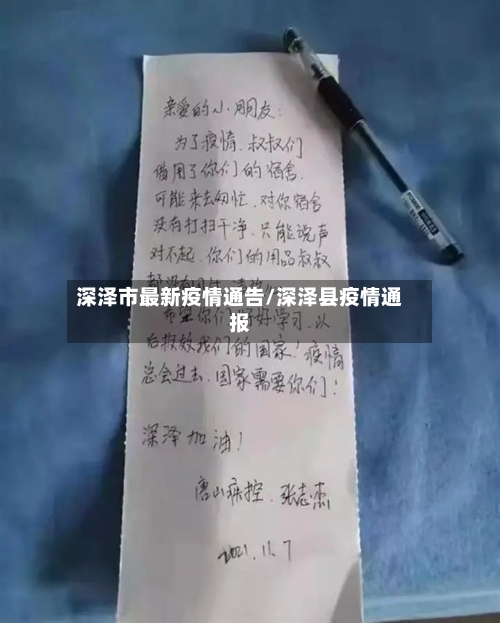 亲爱的小朋友：
为了疫情，叔叔们
借用了你们的宿舍，
可能来去匆忙，对你宿舍
没有打扫干净，只能说声
对不起，你们的用品叔叔
深泽市最新疫情通告/深泽县疫情通
报
希望你们好好学习，以
后报效我们的国家！疫情
总会过去，国家需要你们！
深泽加油！
唐山疾控，张志杰
2021.11.7